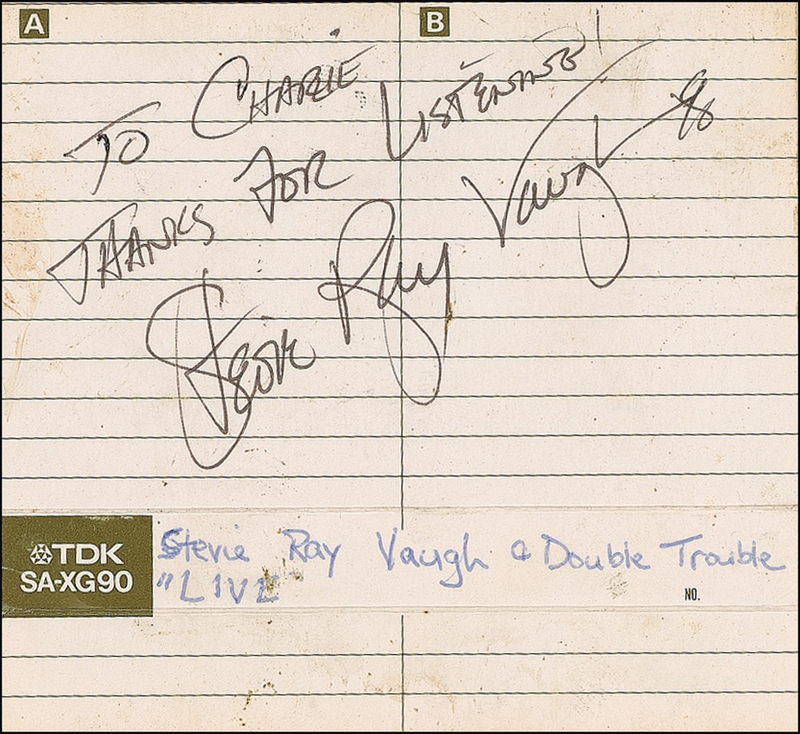 A B
TO CHARIE
THANKS FOR LISTENING!
Stevie Ray Vaugh
TDK
SA-XG90
Stevie Ray Vaugh & Double Trouble
"LIVE"
NO.